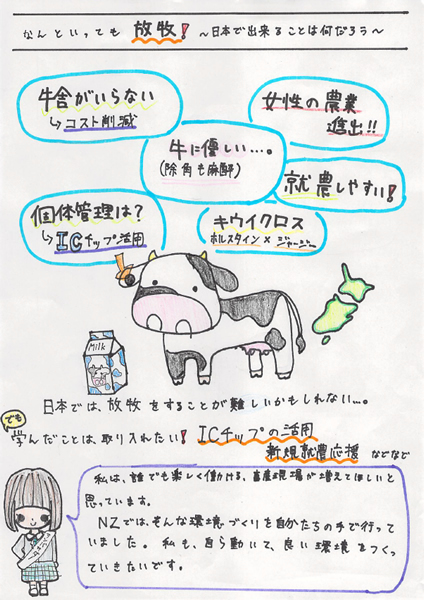 なんといっても 放牧! ～日本で出来ることは何だろう～
牛舎がいらない
↳コスト削減
女性の農業
進出!!
牛に優しい…。
(除角も麻酔)
就農しやすい!
個体管理は?
↳ICチップ活用
キウイクロス
ホルスタイン×ジャージー
Milk
日本では、放牧をすることが難しいかもしれない…。
でも
学んだことは、取り入れたい! ICチップの活用
新規就農応援 などなど
私は、誰でも楽しく働ける、畜産現場が増えてほしいと
思っています。
NZでは、そんな環境づくりを自分たちの手で行って
いました。私も、自ら動いて、良い環境をつくっ
ていきたいです。